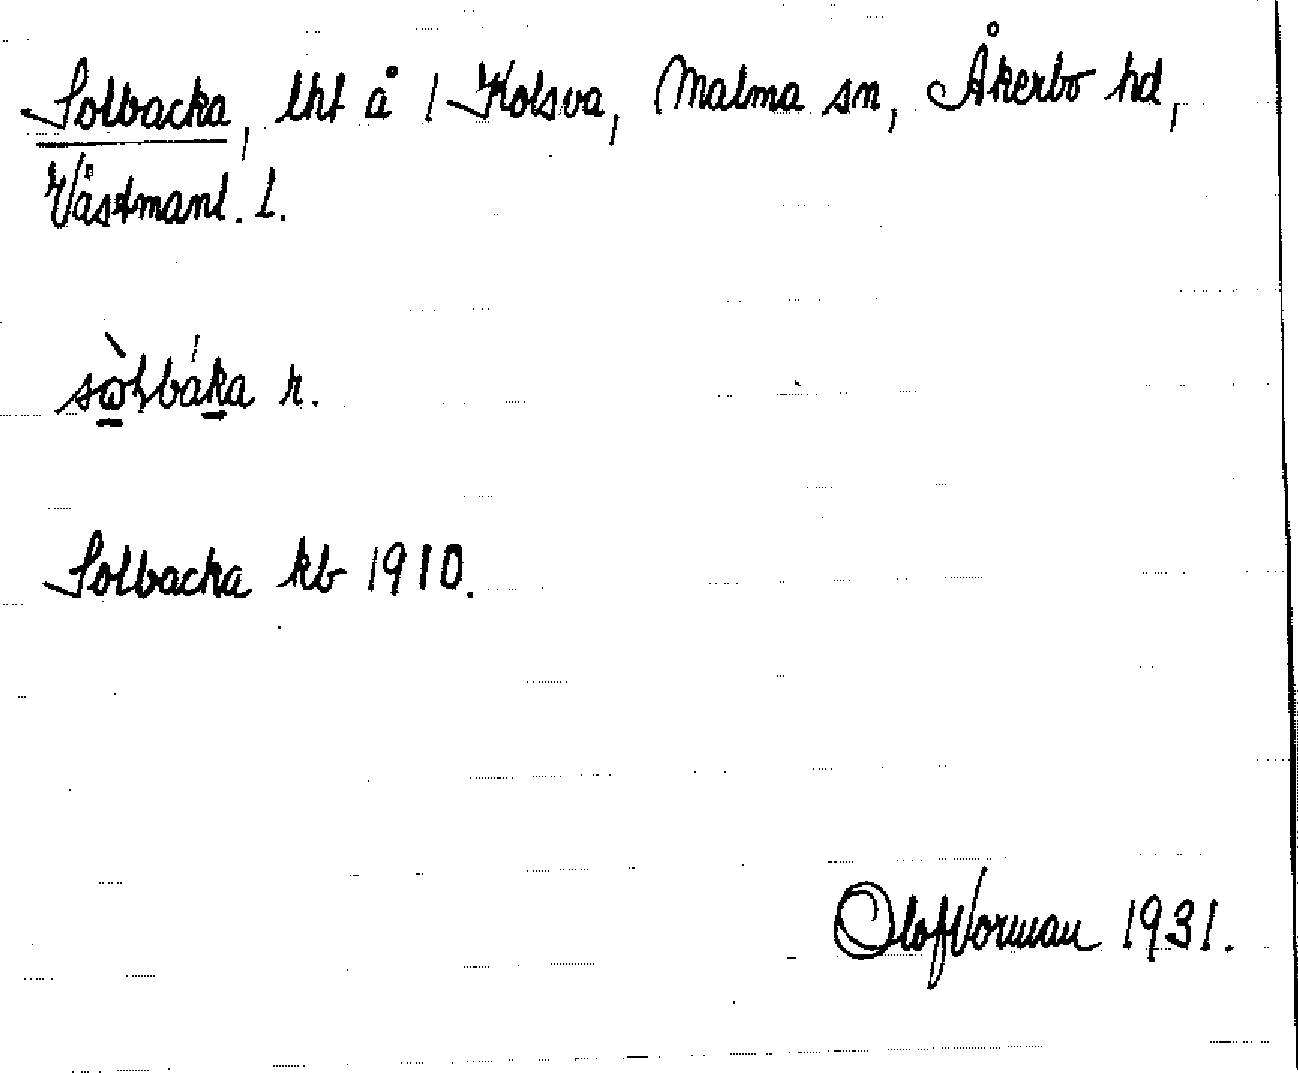 Solbacka, lht å 1 Kolsva, Malma sn, Åkerbo hd,
Västmanl. l.
Solbacka kb 1910.
Olof Vorman 1931.